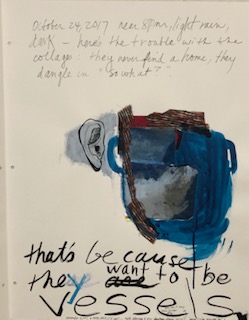 October 24, 2017 near 8pm, light rain,
dark – here's the trouble with the
collages: they never find a home, they
dangle in "so what?"
that's be cause
they want to be
vessels